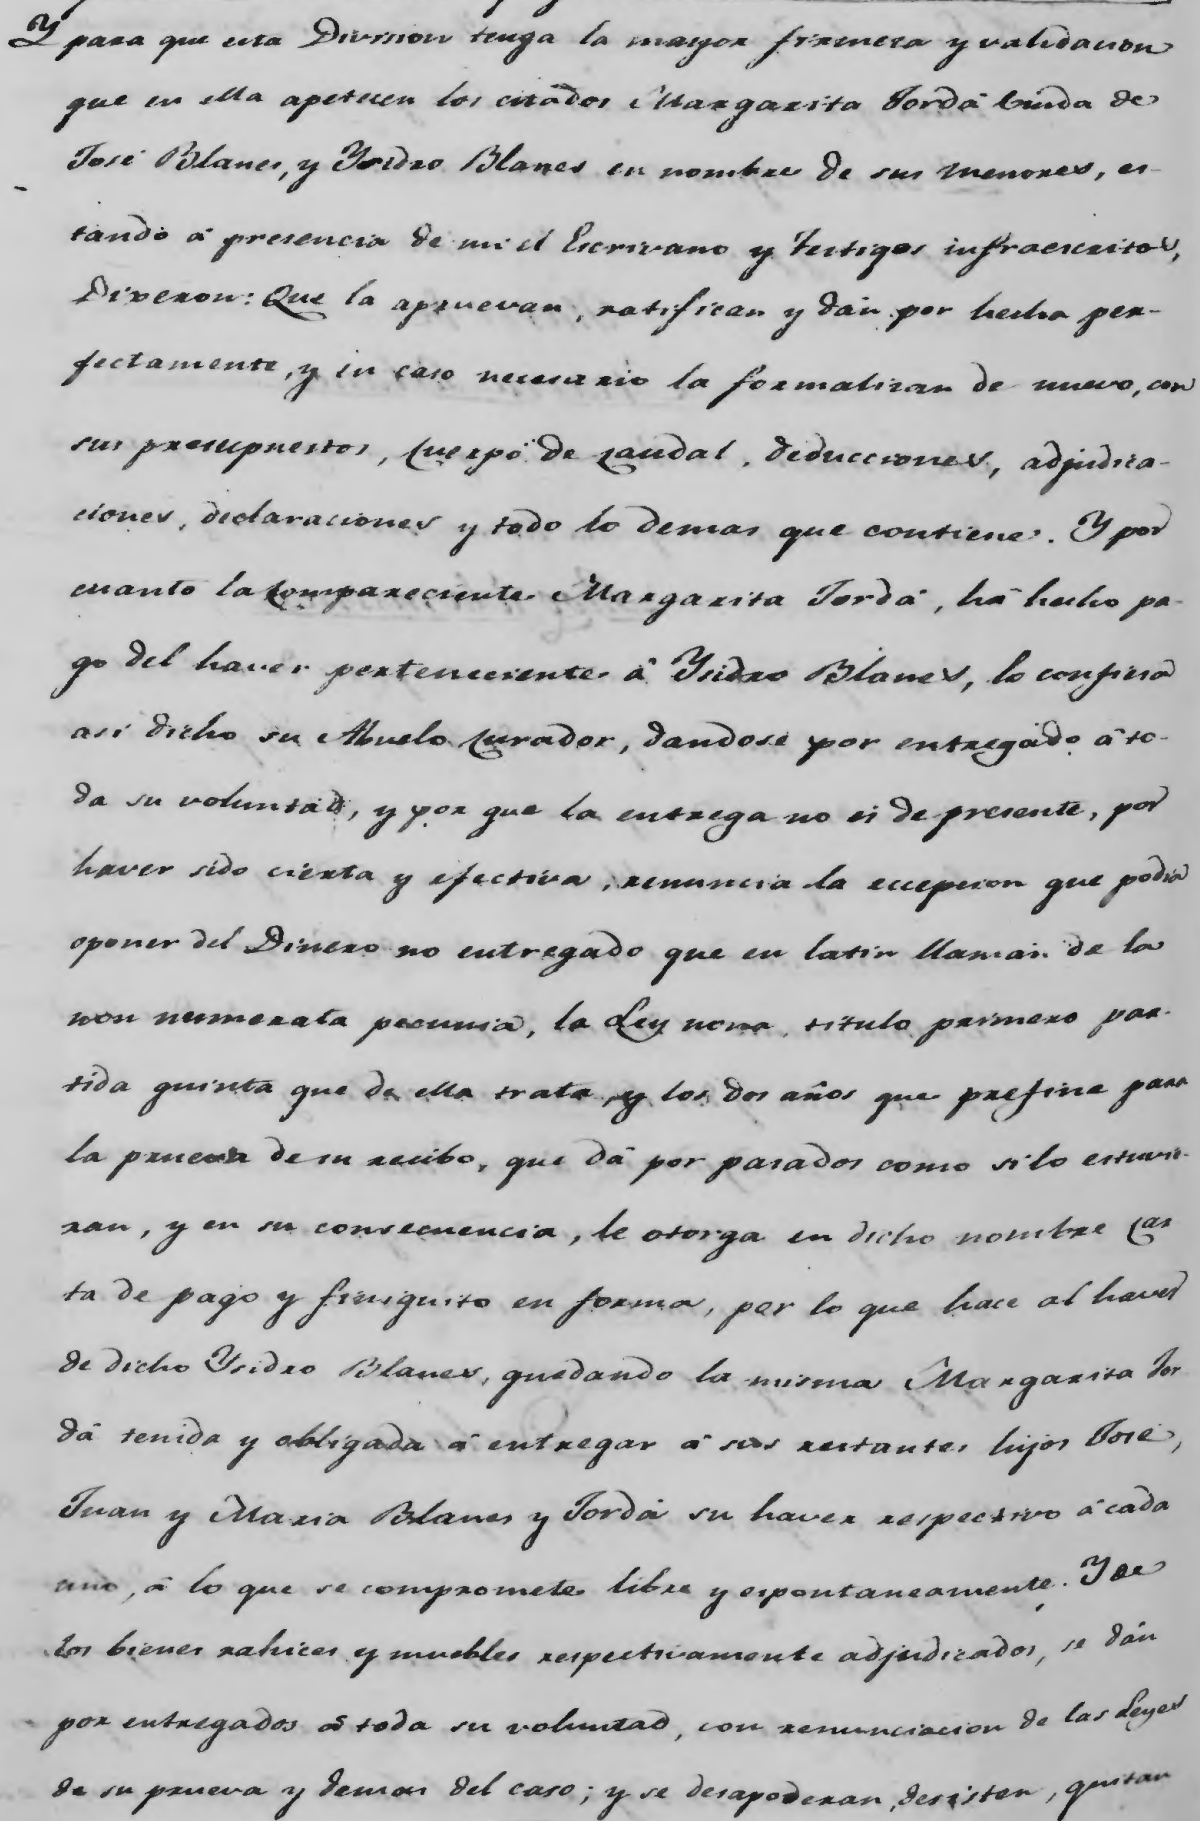 Y para que esta Division tenga la mayor firmeza y validacion
que en ella apetecen los citados Margarita Jordá Viuda de
José Blanes, y Ysidro Blanes en nombre de sus menores, es-
tando á presencia de mi el Escrivano y testigos infraescritos,
Dixeron: Que la apruevan, ratifican y dán por hecha per-
fectamente, y en caso necesario la formalizan de nuevo, con
sus presupuestos, Cuerpo de Caudal, deducciones, adjudica-
ciones, declaraciones y todo lo demas que contiene. Y por
cuanto la Compareciente Margarita Jordá, há hecho pa-
go del haver perteneciente á Ysidro Blanes, lo confiesa
asi dicho su Abuelo Curador, dandose por entregado á to-
da su voluntad, y por que la entrega no es de presente, por
haver sido cierta y efectiva, renuncia la ecepcion que podia
oponer del Dinero no entregado que en latin llaman de la
non numerata pecunia, la Ley nona, titulo primero par-
tida quinta que de ella trata, y los dos años que prefine para
la prueva de su recibo, que dá por pasados como si lo estuvie-
ran, y en su consecuencia, le otorga en dicho nombre Car
ta de pago y finiquito en forma, por lo que hace al haver
de dicho Ysidro Blanes, quedando la misma Margarita Jor
dá tenida y obligada á entregar á sus restantes hijos José,
Juan y Maria Blanes y Jordá su haver respectivo á cada
uno, á lo que se compromete libre y espontaneamente. Y de
los bienes rahices y muebles respectivamente adjudicados, se dán
por entregados á toda su voluntad, con renunciacion de las Leyes
de su prueva y demas del caso; y se desapoderan, desisten, quitan